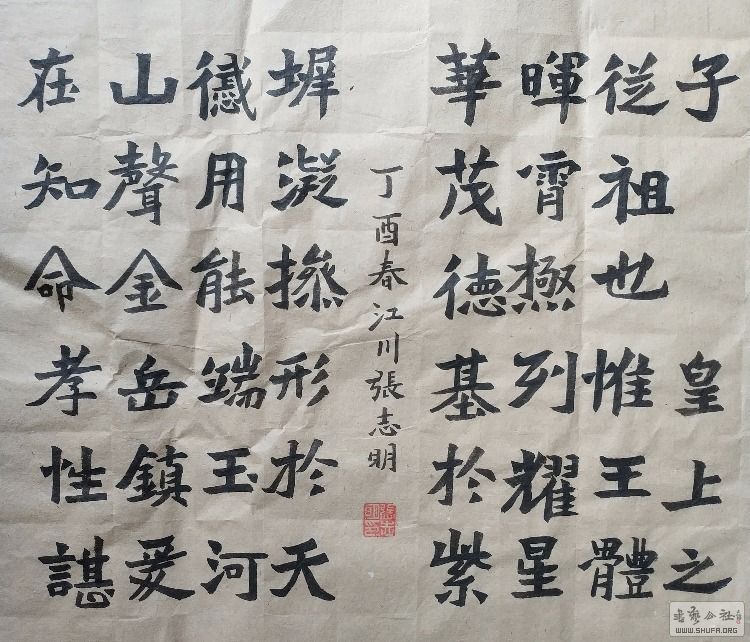 子 皇上之
従祖也惟王體
暉霄極列耀星
華茂德基於紫
丁酉春江川張志明
墀凝撡形於天
用能端玉河
山聲金岳鎮爰
在知命孝性諶
WWW.SHUFA.ORG